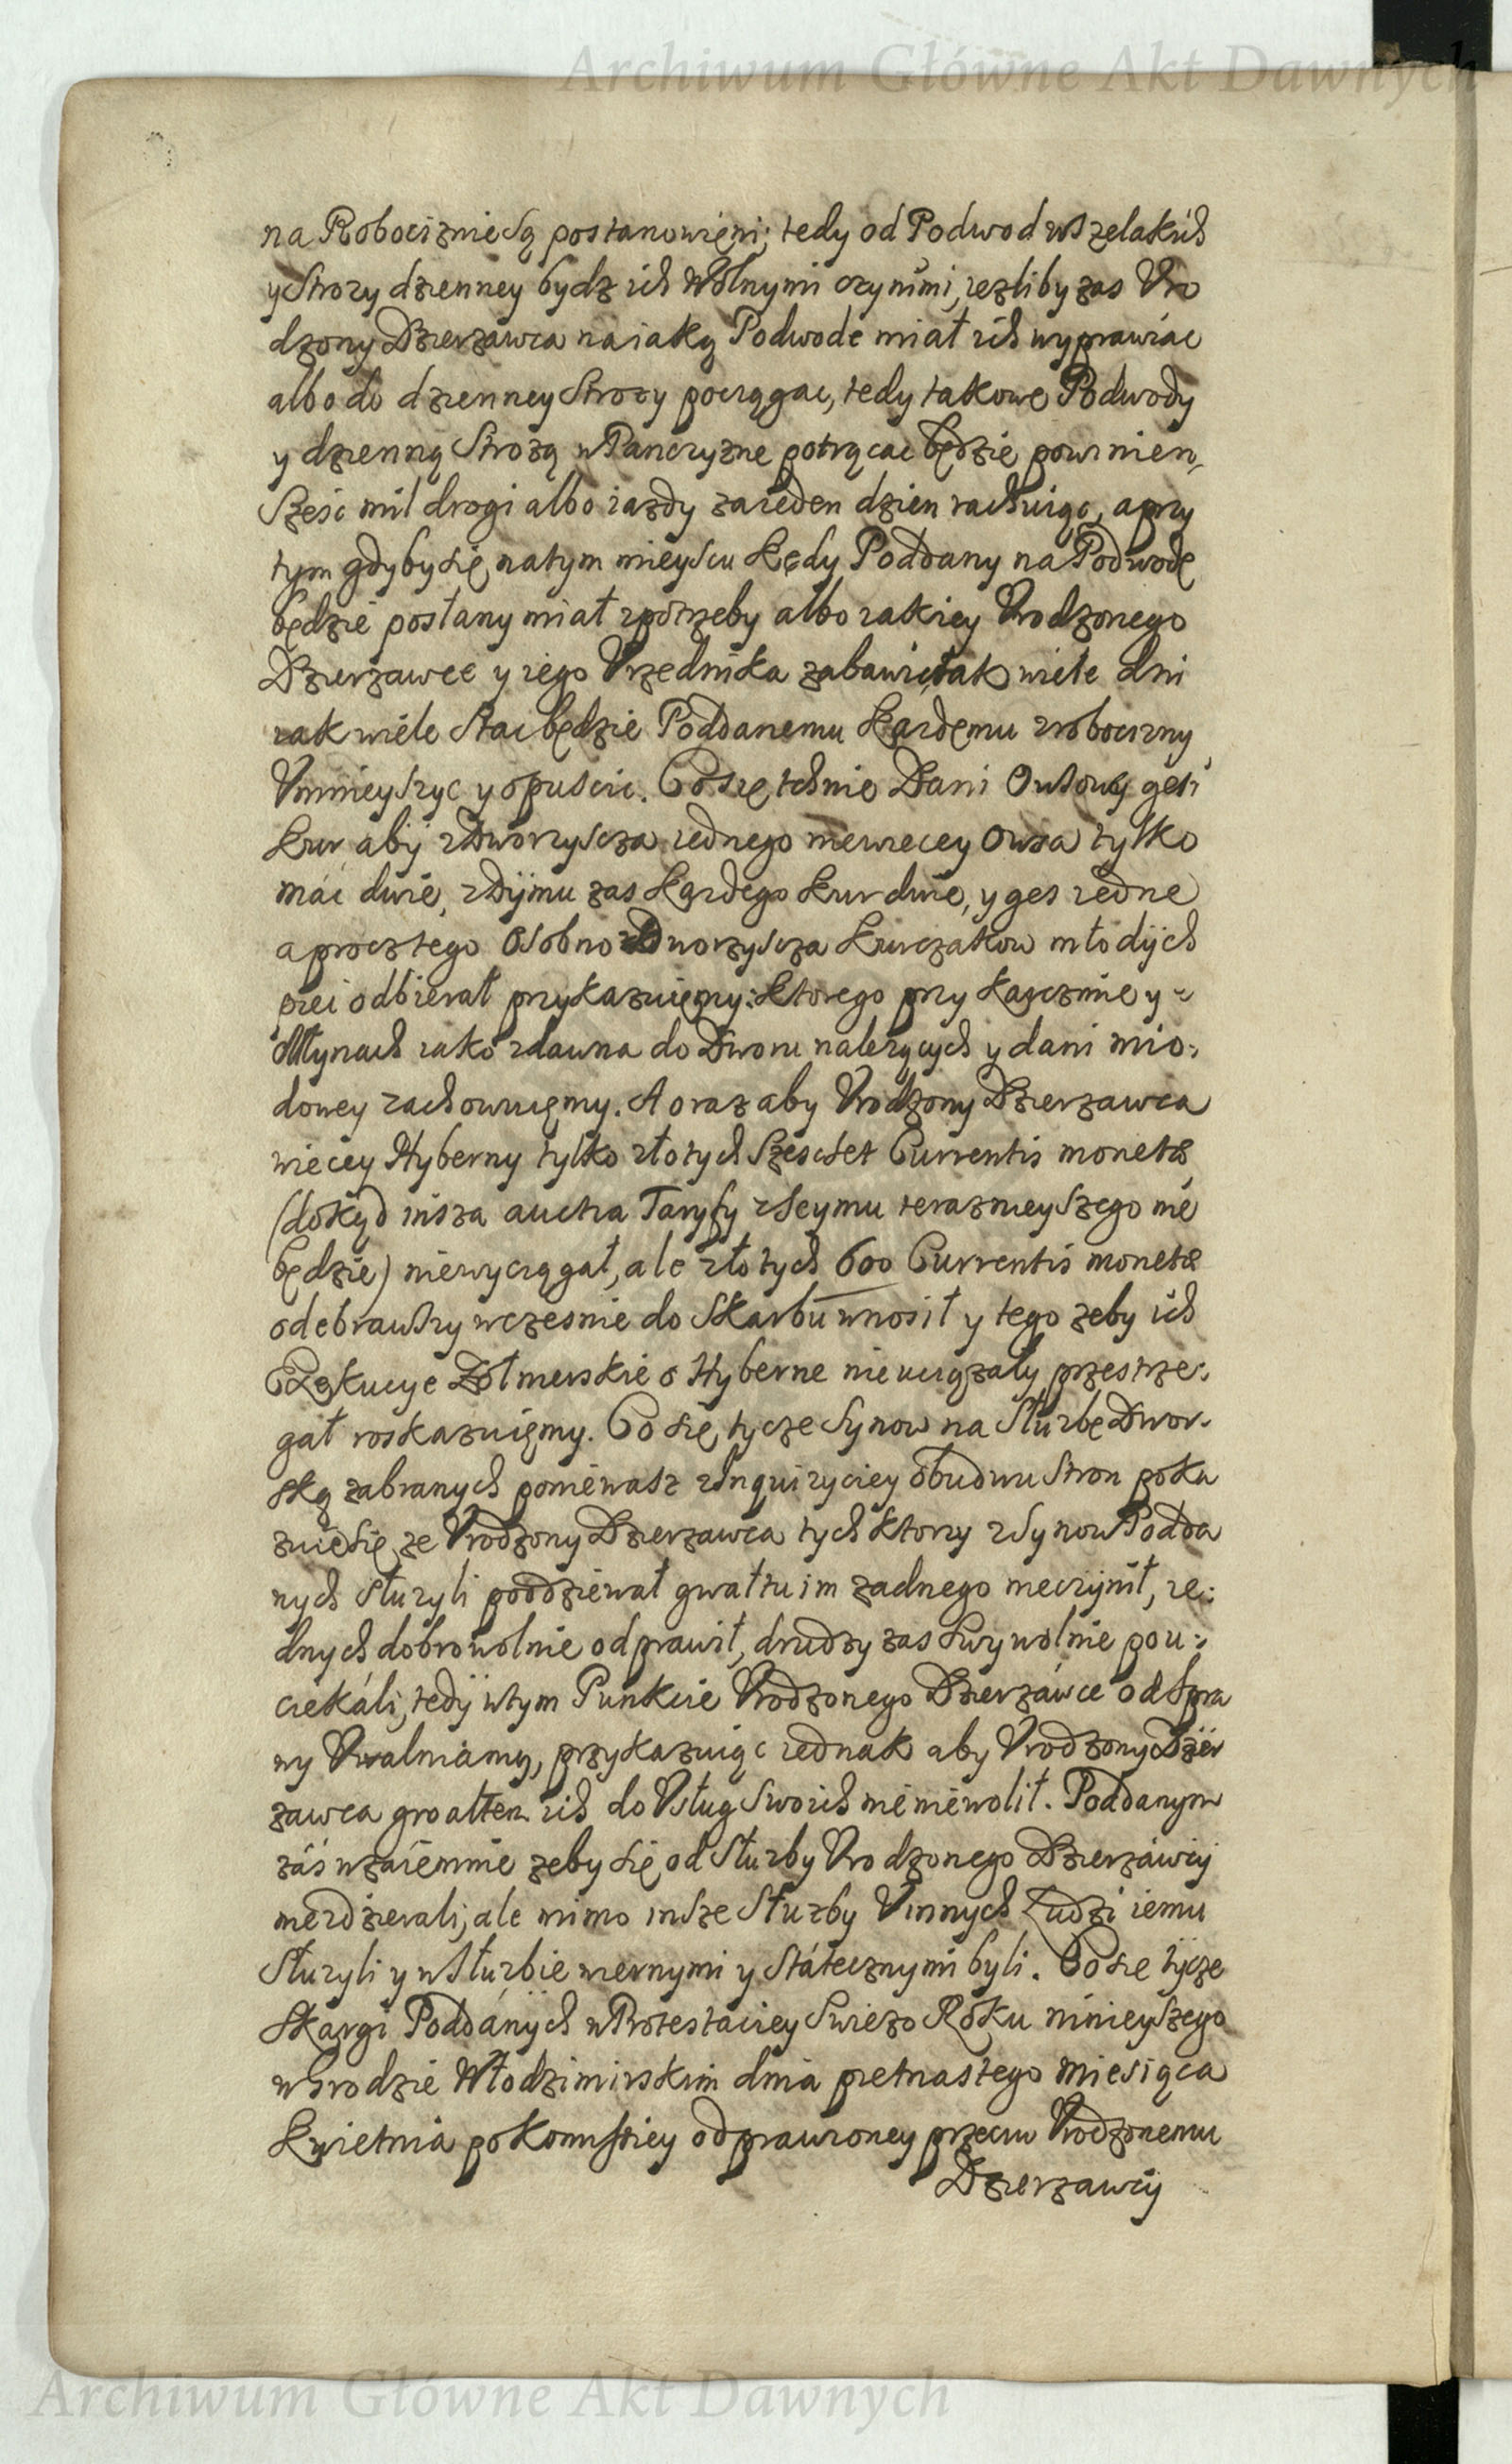 Archiwum Główne Akt Dawnych
na Robociznie są postanowięni; tedy od Podwod wszelakich
y Strozy dzienney bydz ich Wolnymi czynimi, iezliby zas Vro
dzony Dzierzawca na iaką Podwode miał ich wyprawiac
albo do dzienney Strozy pociągac, tedy takowe Podwody
y dzienną Strozą w Panczyzne potrącac będzie powinien,
Szesc mil drogi albo iazdy za ieden dzien rachuiąc, a przy
tym gdyby się na tym mieyscu kędy Poddany na Podwodę
będzie posłany miał z potrzeby albo iakiey Vrodzonego
Dzierzawce y iego Vrzednika zabawic, tak wiele dni
iak wiele Stac będzie Poddanemu kązdęmu z robocizny
Vmnieyszyc y opuscic. Co się tchnie Dani Owsowey gęsi
kur abÿ z Dworzyscza iednego niewiecey Owsa tylko
mac dwie, z Dÿmu zas kązdego kur dwie, y ges iedne
a procz tego Osobno z Dworzyscza kurczakow młodÿch
piec odbierał przykazuięmy: ktorego przy karczmie y
Młynach iako zdawna do Dworu nalezących y dani mio:
dowey zachowuięmy. A oraz aby Vrodzony Dzierzawca
wiecey Hyberny tylko złotych Szescset Currentis monetæ
(dokąd insza auctia Taryfy z Seymu teraznieyszego nie
będzie) niewyciągał, ale złotych 600 Currentis monetæ
odebrawszy wczesnie do Skarbu wnosił y tego zeby ich
Exekucye Zołnierskie o Hyberne nie uciązały przestrze:
gał roskazuięmy. Co się tycze Synow na Słuzbę Dwor-
ską zabranych poniewasz z Inquizyciey obudwu Stron poka
zuie się ze Vrodzony Dzierzawca tych ktorzy z Synow Podda
nych słuzyli poodziewał gwałtu im zadnego nieczynił, ie:
dnych dobrowolnie odprawił, drudzy zas swywolnie pou:
ciekáli, tedÿ w tym Punkcie Vrodzonego Dzierzáwce od Spra
wy Vwalniamy, przykazuiąc iednak aby Vrodzony Dzier
zawca gwałtem ich do Vsług Swoich nie niewolił. Poddanym
záś wzaięmnie zeby się od Słuzby Vrodzonego Dzierzáwcÿ
niezdzierali, ale mimo insze Słuzby V innych Ludzi iemu
Słuzyli y w Słuzbie wiernymi y Státecznymi byli. Co sie tÿcze
Skargi Poddánÿch w Protestaciey Swiezo Roku ninieyszego
w Grodzie Włodzimirskim dnia pietnastego Miesiąca
Kwietnia po Kommissiey odprawioney przeciw Vrodzonemu
Dzierzawcÿ
Archiwum Główne Akt Dawnych